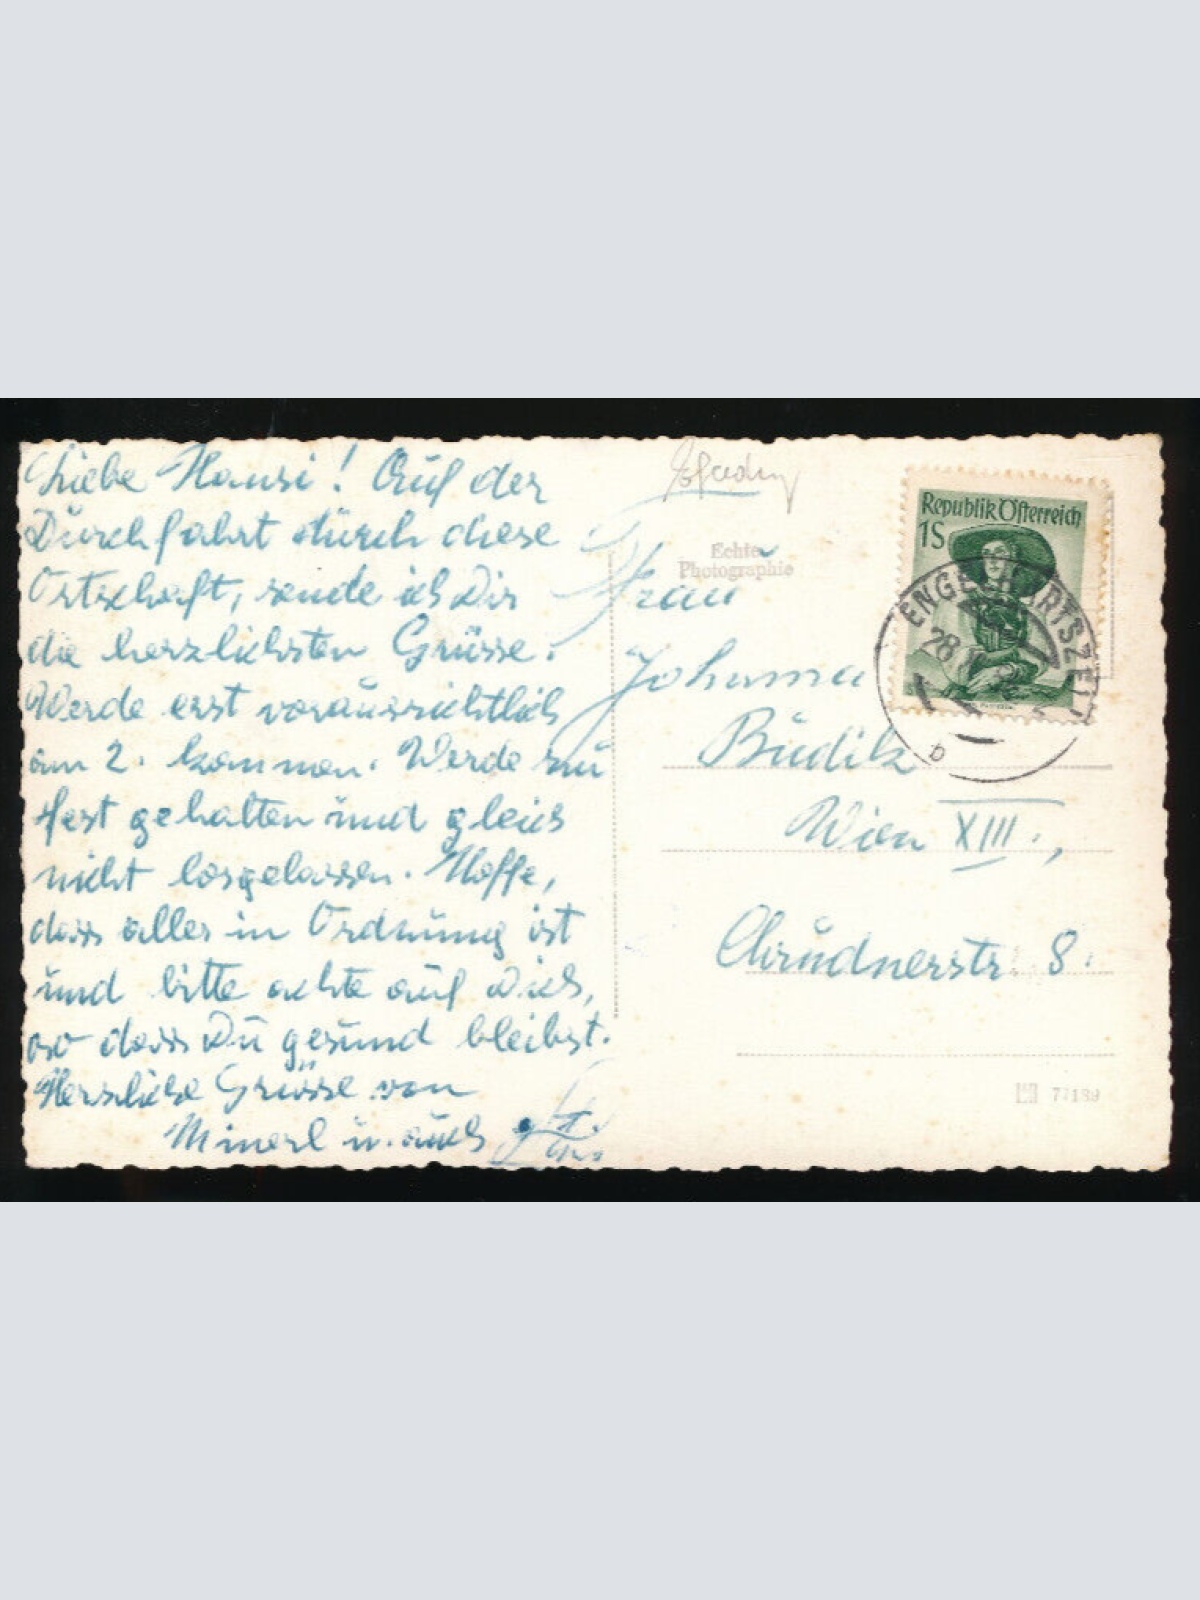 Liebe Hansi! Auf der
Durchfahrt durch diese
Ortschaft, sende ich Dir
die herzlichsten Grüsse.
Werde erst voraussichtlich
am 2. kommen. Werde zu
fest gehalten und gleich
nicht losgelassen. Hoffe,
dass alles in Ordnung ist
und bitte achte auf Dich,
so dass Du gesund bleibst.
Herzliche Grüsse von
Minerl u. auch
Echte
Photographie
Frau
Johanna
Budik
Wien XIII.,
Chrudnerstr. 8.
Republik Österreich
1S
28
b
77189